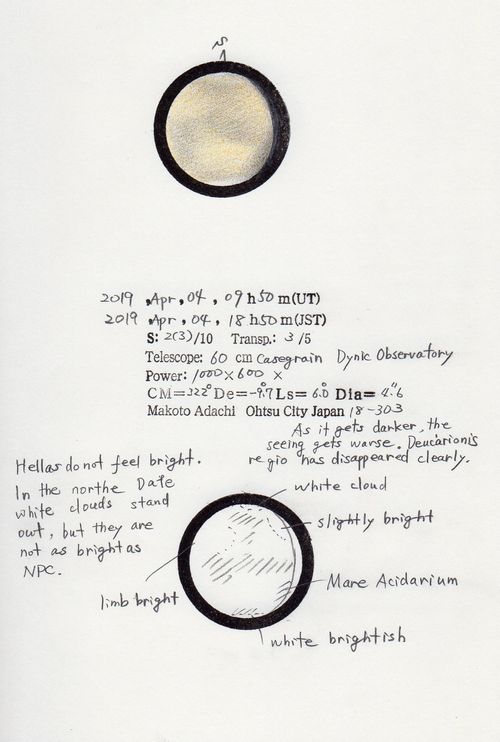 S
2019 , Apr , 04 , 09 h 50 m (UT)
2019 , Apr , 04 , 18 h 50 m (JST)
S: 2(3)/10 Transp.: 3/5
Telescope: 60 cm Casegrain Dynic Observatory
Power: 1000× 600 ×
CM=322° De=-9.°7 Ls= 6.°0 Dia= 4.″6
Makoto Adachi Ohtsu City Japan 18-303
As it gets darker, the
seeing gets warse. Deucarionis
regio has disappeared clearly.
Hellas do not feel bright.
In the northe Date
white clouds stand
out, but they are
not as bright as
NPC.
white cloud
slightly bright
Mare Acidarium
limb bright
white brightish